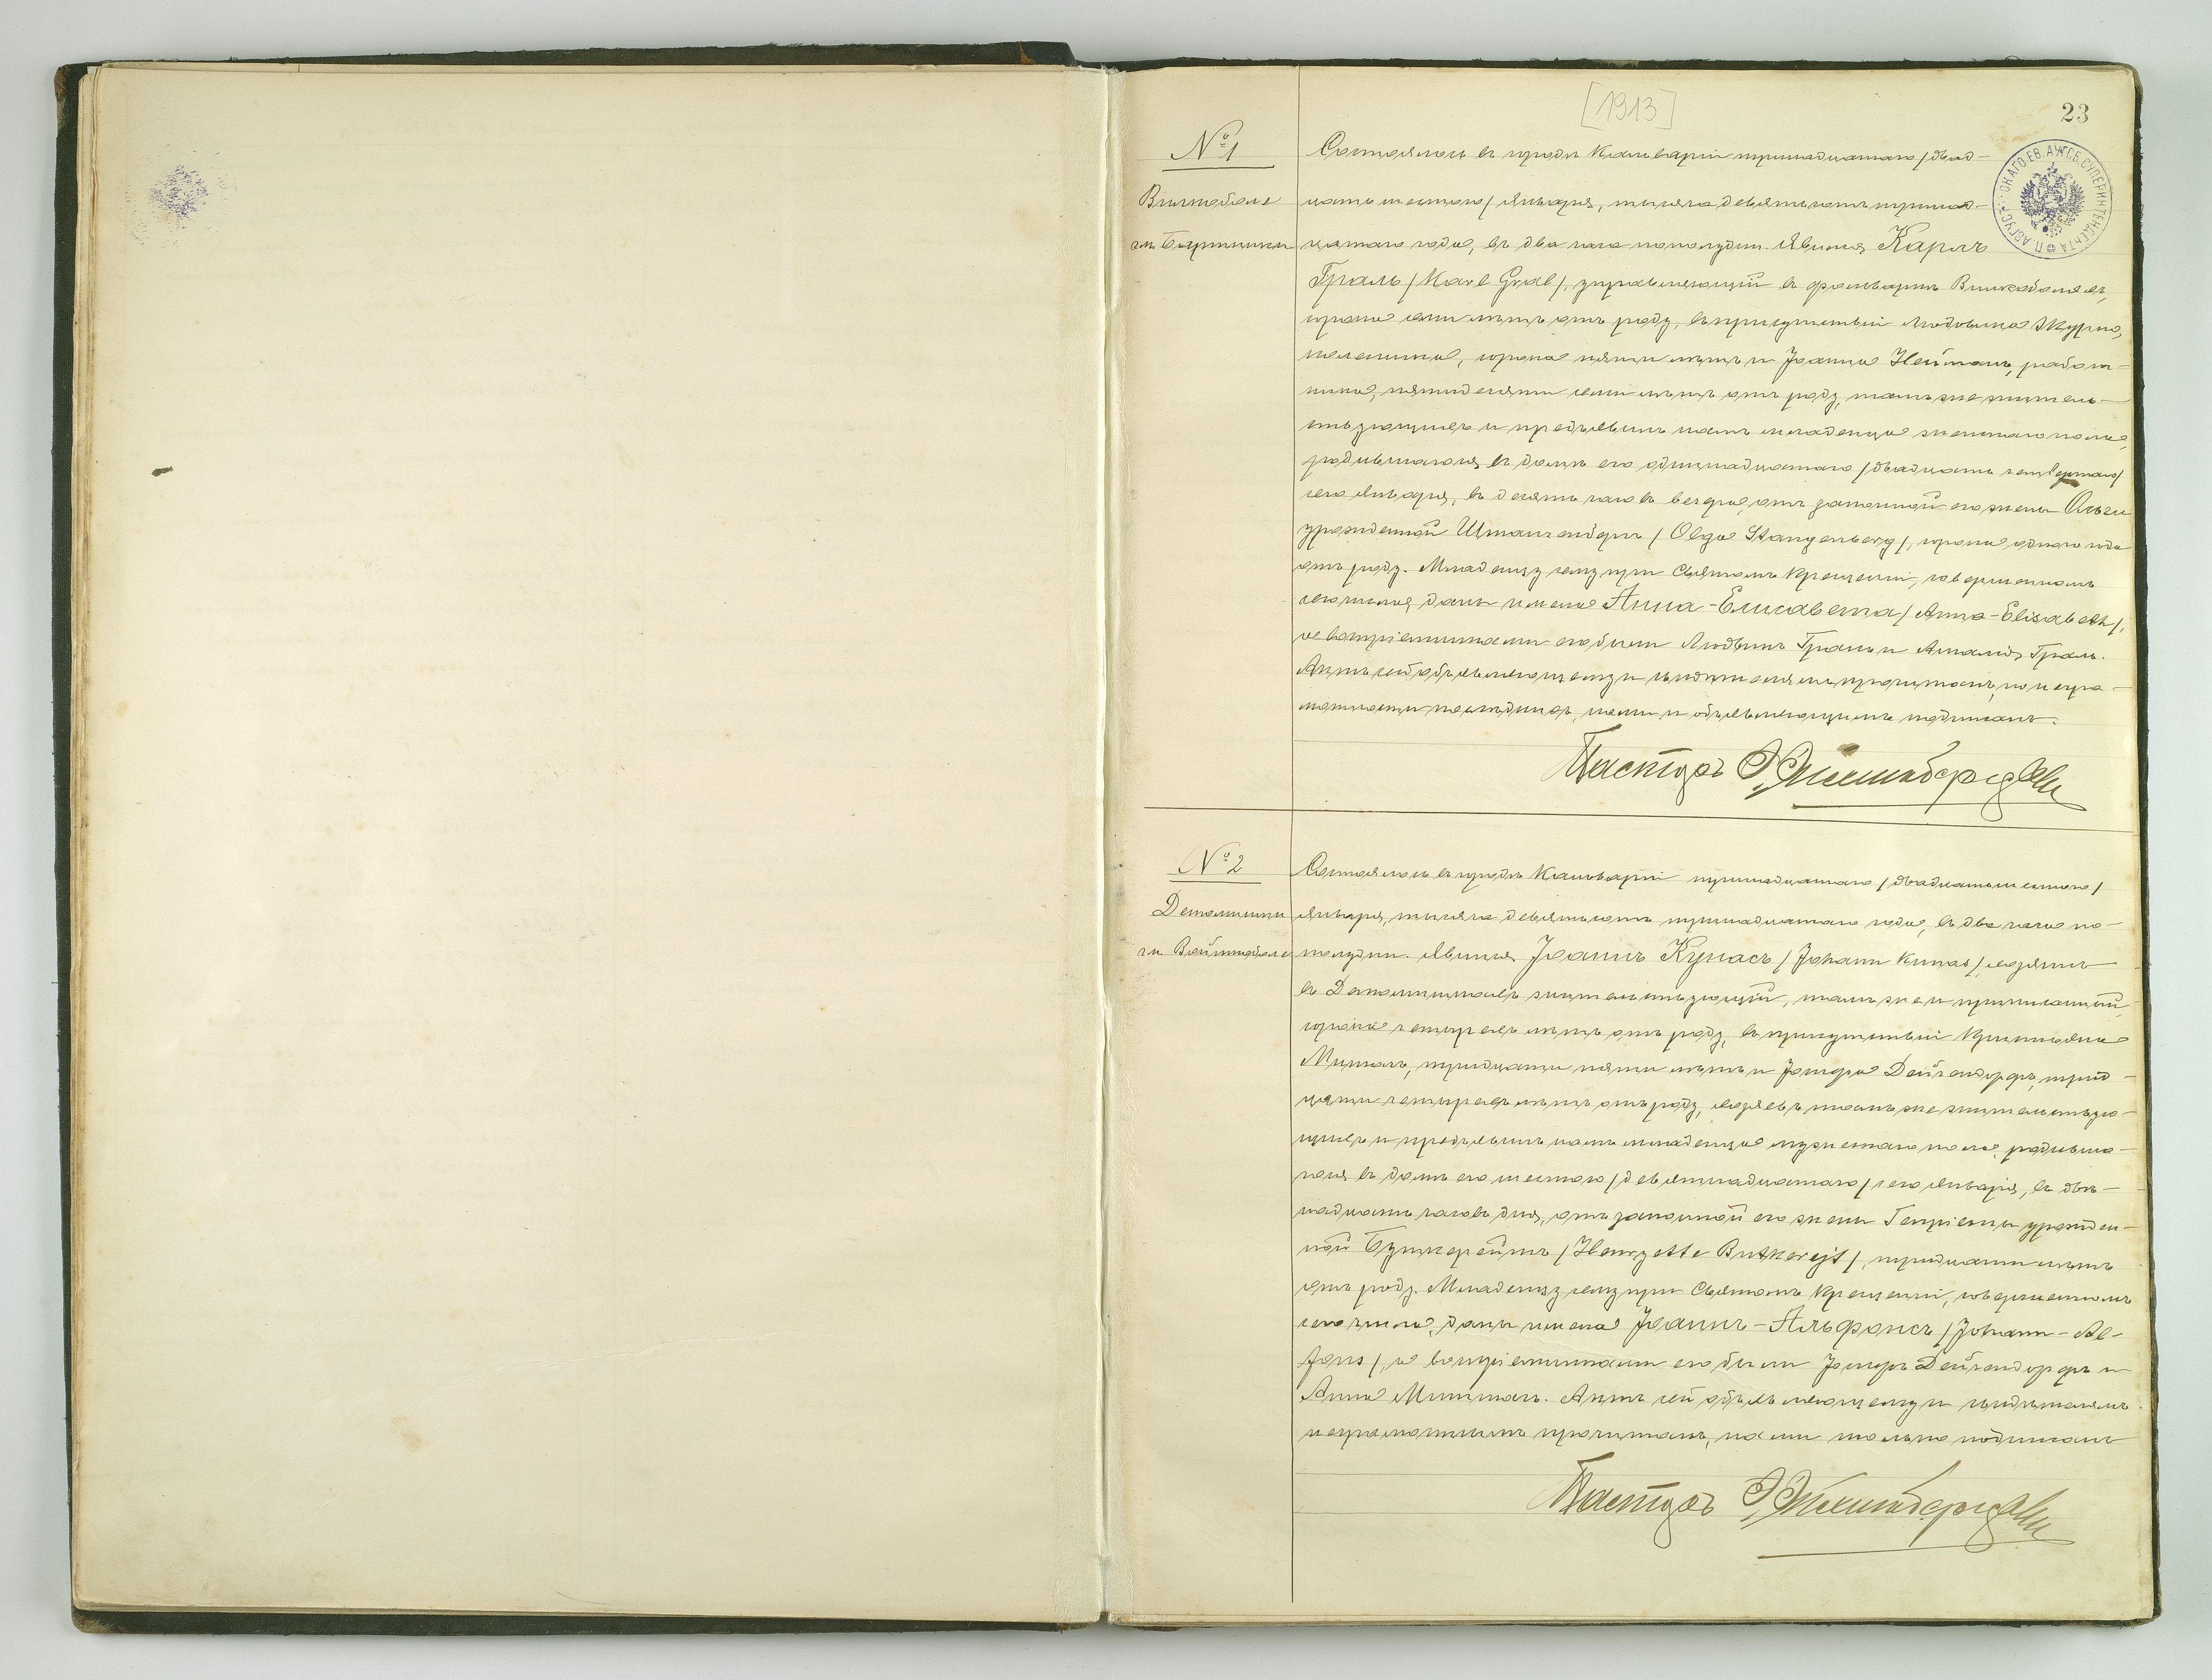 [1913]
23
П АВГУСТОВСКАГО.ЕВ.АУГСБ.СУПЕРИНТЕНДЕНТА
№1
Состоялось въ городѣ Кальваріи тринадцатаго /двад-
цать шестого/ января, тысяча девятьсотъ тринад-
гм.
цатаго года, въ два часа пополудни. Явился Карлъ
Граль /Karl Gral/, управляющій въ фольваркѣ
сорока семи лѣтъ отъ роду, въ присутствіи Людвика
сорока пяти лѣтъ и Іоанна Нейманъ, работ-
ника, пятидесяти семи лѣтъ отъ роду, тамъ же житель-
ствующихъ и предъявилъ намъ младенца женскаго пола,
родившагося въ домѣ его одиннадцатаго /двадцать четвертаго/
сего января, въ десять часовъ вечера, отъ законной его жены Ольги
урожденной Штангенбергъ /Olga Stangenberg/, сорока одного года
отъ роду. Младенцу сему при Святомъ Крещеніи, совершенномъ
сего числа, даны имена Анна-Елисавета /Anna-Elisabeth/,
а воспріемниками его были Людвигъ Граль и Амалія Граль.
Актъ сей объявляющему и свидѣтелямъ прочитанъ, по негра-
мотности послѣднихъ, нами и объявляющимъ подписанъ.
Пасторъ
№2
Состоялось въ городѣ Кальваріи тринадцатаго /двадцать шестого/
января, тысяча девятьсотъ тринадцатаго года, въ два часа по-
гм.
полудни. Явился Іоаннъ Кунасъ /Johann Kunas/, хозяинъ
въ жительствующій, тамъ же и приписанный,
сорока четырехъ лѣтъ отъ роду, въ присутствіи Христіана
тридцати пяти лѣтъ и трид-
цати четырехъ лѣтъ отъ роду, хозяевъ тамъ же жительствую-
щихъ и предъявилъ намъ младенца мужескаго пола, родивша-
гося въ домѣ его шестого /девятнадцатаго/ сего января, въ двѣ-
надцать часовъ дня, отъ законной его жены Генріеты урожден-
ной Буткерейтъ /Henryette Butkerejt/, тридцати лѣтъ
отъ роду. Младенцу сему при Святомъ Крещеніи, совершенномъ
сего числа, даны имена Іоаннъ-Альфонсъ /Johann-Al-
fons/, а воспріемниками его были и
Анна Актъ сей объявляющему и свидѣтелямъ
неграмотнымъ прочитанъ, нами только подписанъ
Пасторъ